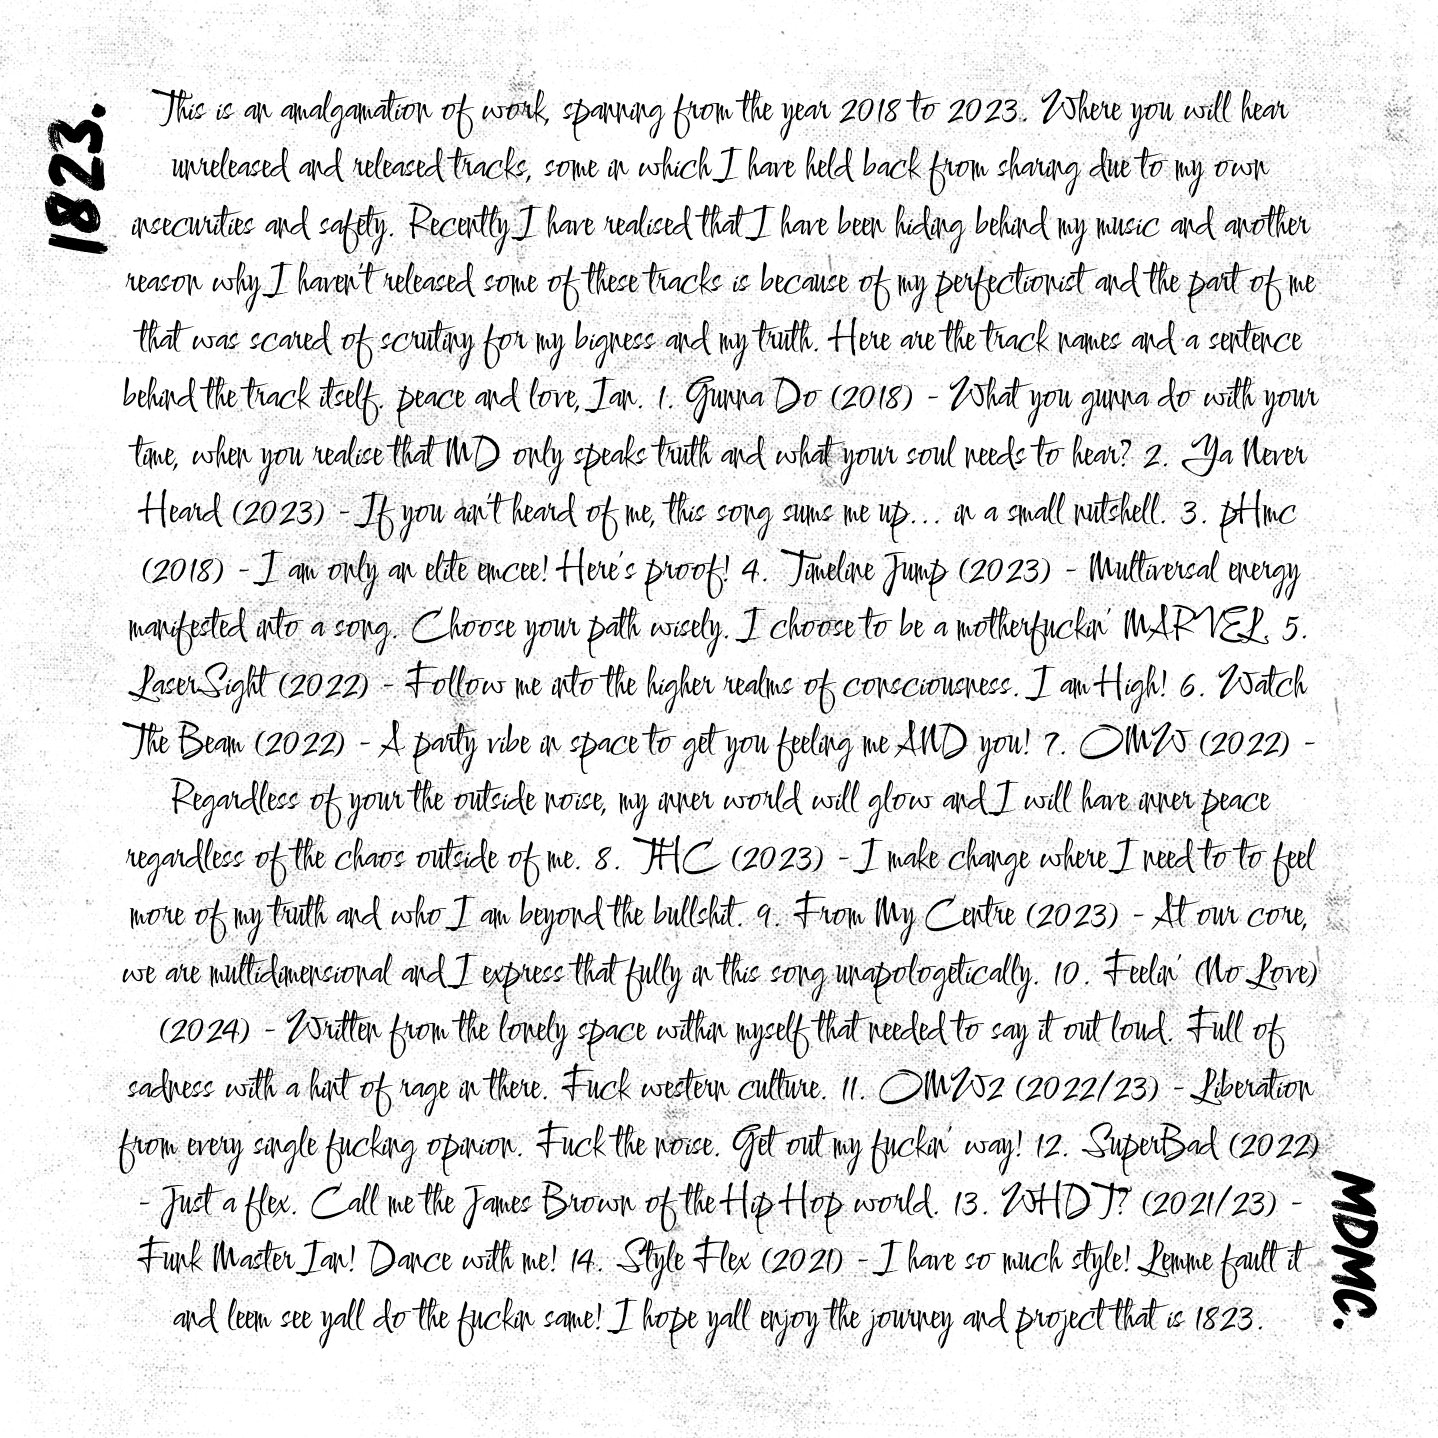 1823.
This is an amalgamation of work, spanning from the year 2018 to 2023. Where you will hear
unreleased and released tracks, some in which I have held back from sharing due to my own
insecurities and safety. Recently I have realised that I have been hiding behind my music and another
reason why I haven't released some of these tracks is because of my perfectionist and the part of me
that was scared of scrutiny for my bigness and my truth. Here are the track names and a sentence
behind the track itself. peace and love, Ian. 1. Gunna Do (2018) - What you gunna do with your
time, when you realise that MD only speaks truth and what your soul needs to hear? 2. Ya Never
Heard (2023) - If you ain't heard of me, this song sums me up... in a small nutshell. 3. pHmc
(2018) - I am only an elite emcee! Here's proof! 4. Timeline Jump (2023) - Multiversal energy
manifested into a song. Choose your path wisely. I choose to be a motherfuckin' MARVEL. 5.
LaserSight (2022) - Follow me into the higher realms of consciousness. I am High! 6. Watch
The Beam (2022) - A party vibe in space to get you feeling me AND you! 7. OMW (2022) -
Regardless of your the outside noise, my inner world will glow and I will have inner peace
regardless of the chaos outside of me. 8. THC (2023) - I make change where I need to to feel
more of my truth and who I am beyond the bullshit. 9. From My Centre (2023) - At our core,
we are multidimensional and I express that fully in this song unapologetically. 10. Feelin' (No Love)
(2024) - Written from the lonely space within myself that needed to say it out loud. Full of
sadness with a hint of rage in there. Fuck western culture. 11. OMW2 (2022/23) - Liberation
from every single fucking opinion. Fuck the noise. Get out my fuckin' way! 12. SuperBad (2022)
- Just a flex. Call me the James Brown of the Hip Hop world. 13. WHDT? (2021/23) -
Funk Master Ian! Dance with me! 14. Style Flex (2021) - I have so much style! Lemme fault it
and leem see yall do the fuckin same! I hope yall enjoy the journey and project that is 1823.
MDMC.